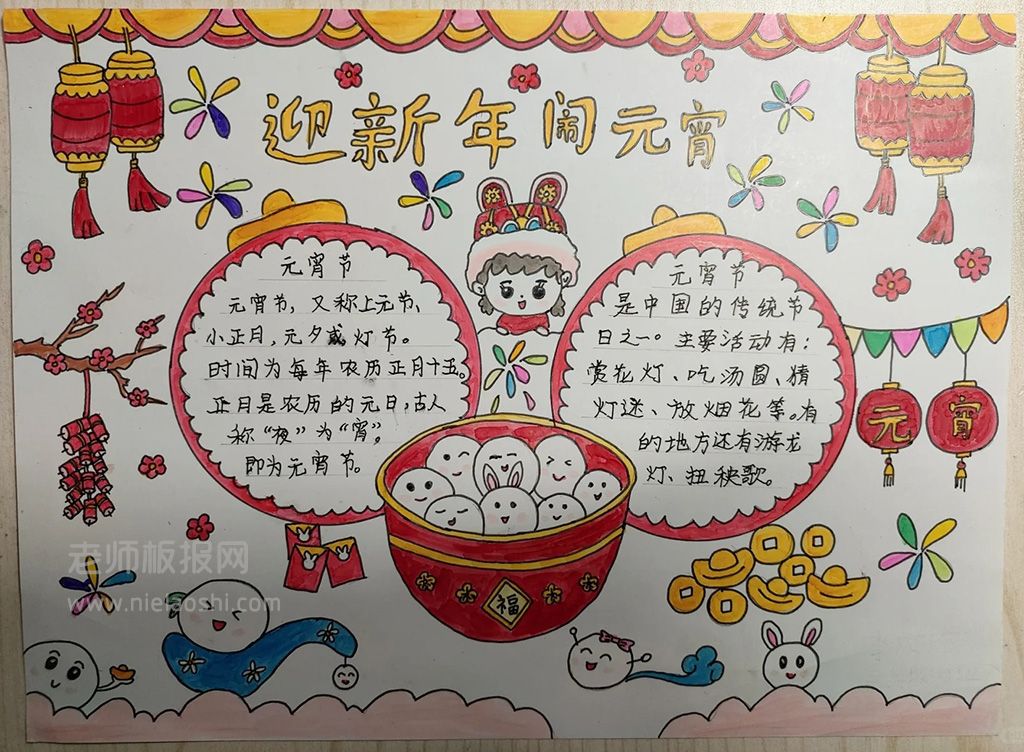 迎新年闹元宵
元宵节
元宵节，又称上元节、
小正月，元夕或灯节。
时间为每年农历正月十五。
正月是农历的元日，古人
称“夜”为“宵”，
即为元宵节。
元宵节
是中国的传统节
日之一。主要活动有：
赏花灯、吃汤圆、猜
灯迷、放烟花等。有
的地方还有游龙
灯、扭秧歌。
元
宵
福
老师板报网
www.nielaoshi.com